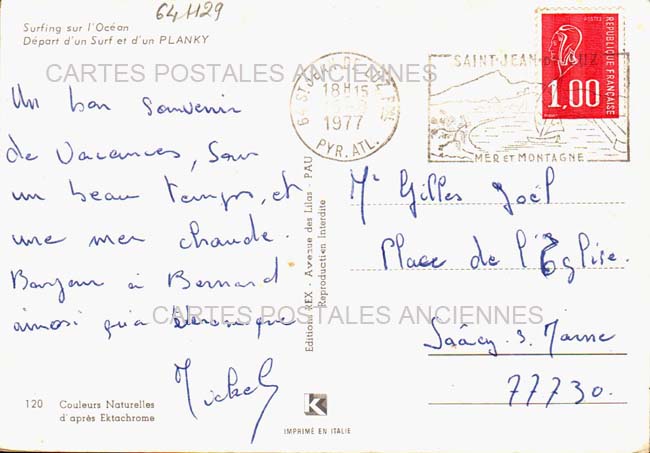 64 1129
Surfing sur l'Océan
Départ d'un Surf et d'un PLANKY
CARTES POSTALES ANCIENNES
Un bon souvenir
de Vacances, sous
un beau temps, et
une mer chaude.
Bonjour à Bernard
ainsi qu'à Véronique
Mickel
120 Couleurs Naturelles
d'après Ektachrome
Editions REX - Avenue des Lilas - PAU
Reproduction Interdite
K
IMPRIMÉ EN ITALIE
64 ST JEAN DE LUZ
18H15
1977
PYR. ATL.
SAINT-JEAN-DE-LUZ
MER ET MONTAGNE
POSTES
REPUBLIQUE FRANÇAISE
1,00
Mr Gilles Joël
Place de l'Église.
CARTES POSTALES ANCIENNES
Saâcy. s. Marne
77730.